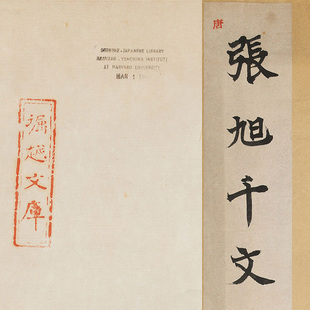 唐
張旭千文
CHINESE-JAPANESE LIBRARY
HARVARD-YENCHING INSTITUTE
AT HARVARD UNIVERSITY
MAR 1
堀越文庫